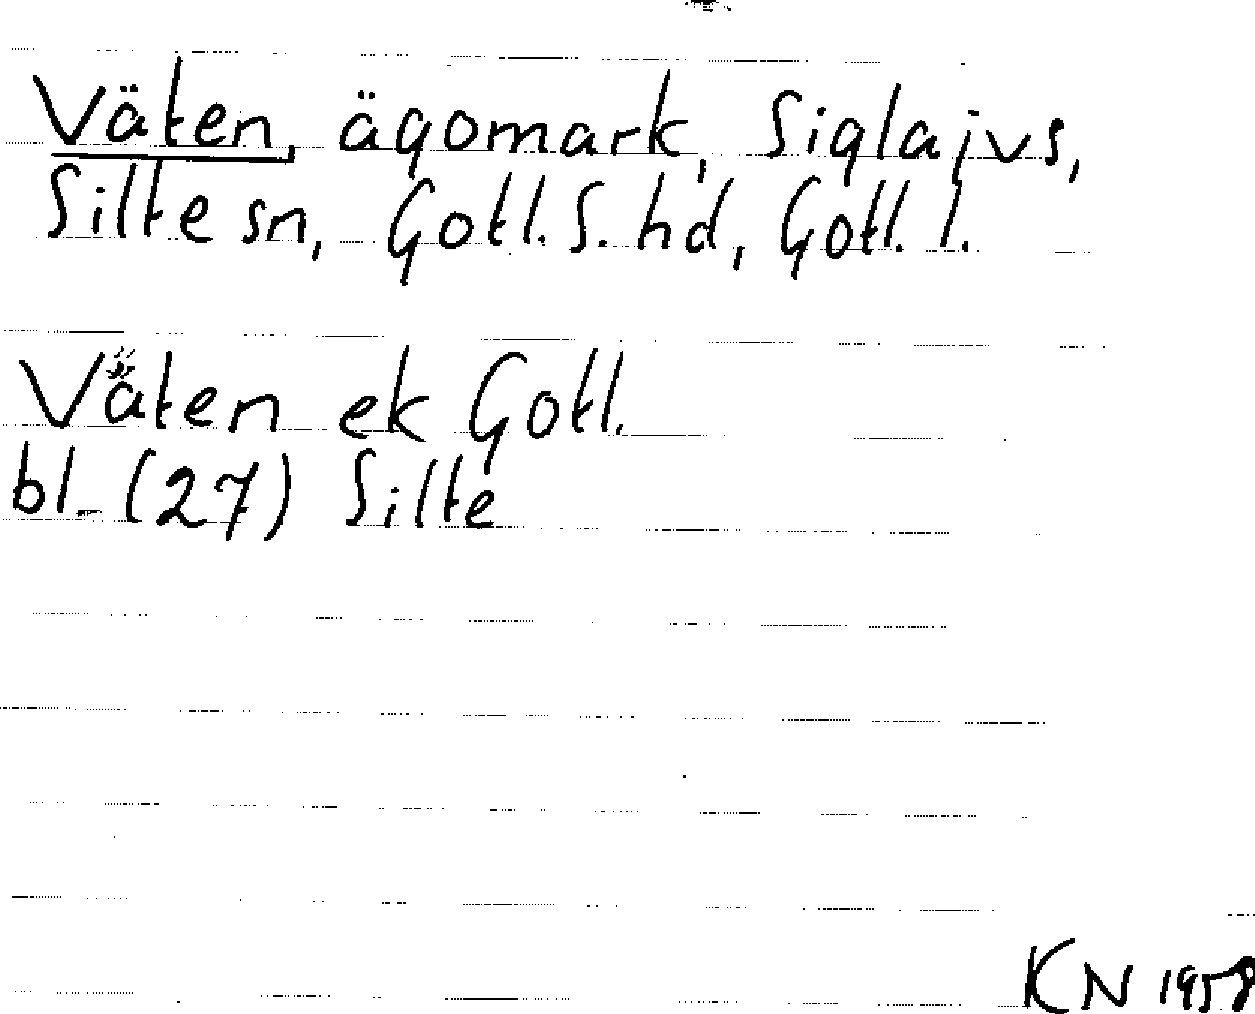 Väten, ägomark, Siglajvs,
Silte sn, Gotl. S. hd, Gotl. l.
Väten ek Gotl.
bl. (27) Silte
KN 1958